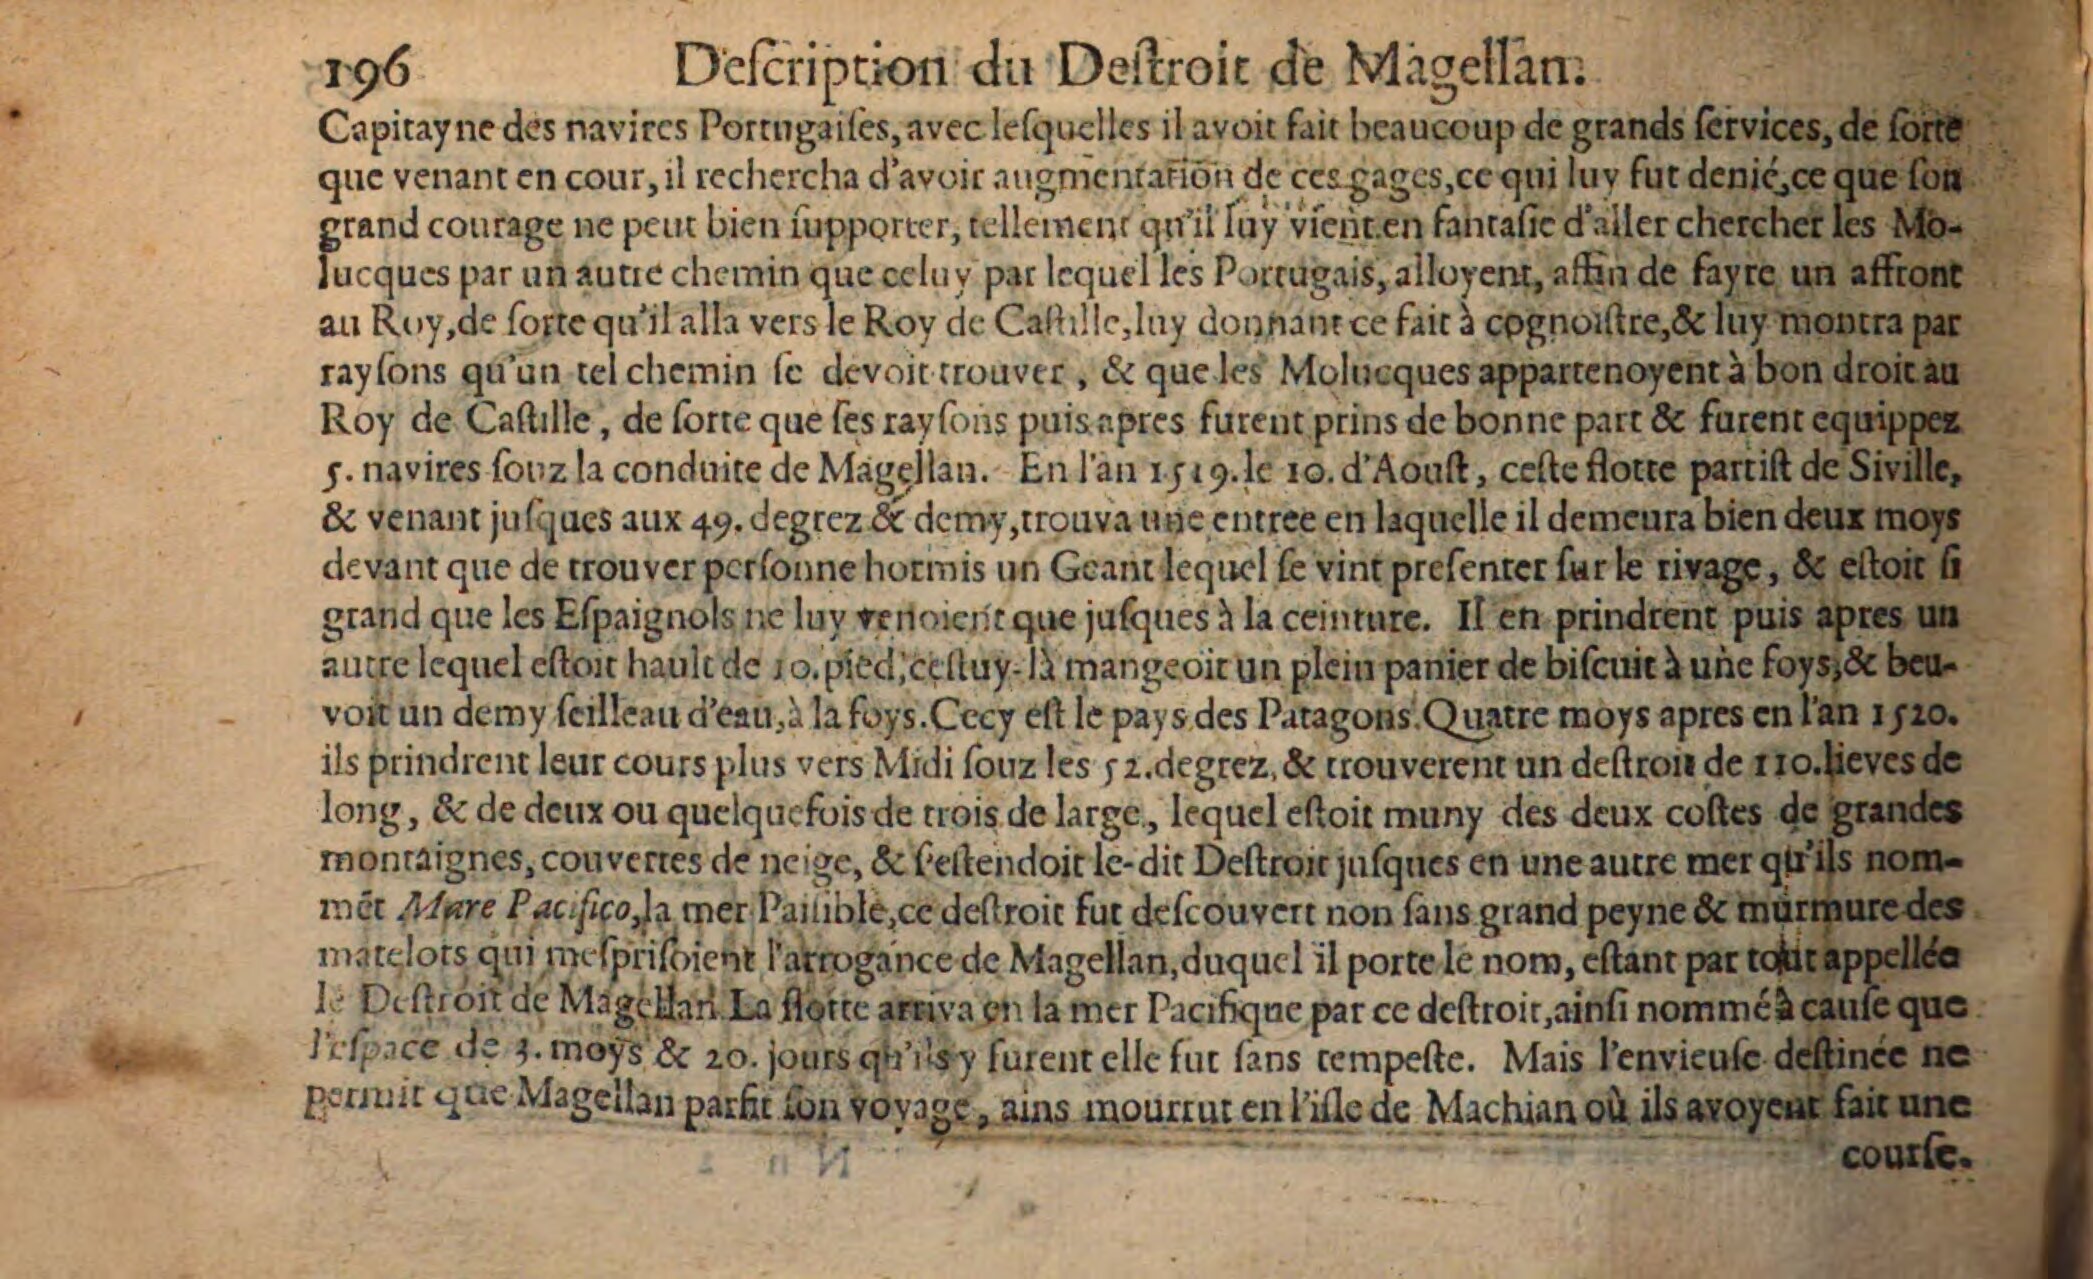 196 Deſcription du Deſtroit de Magellan.
Capitayne des navires Portugaiſes, avec leſquelles il avoit fait beaucoup de grands ſervices, de ſorte
que venant en cour, il rechercha d'avoir augmentation de ces gages, ce qui luy fut denié, ce que ſon
grand courage ne peut bien ſupporter, tellement qu'il luy vient en fantaſie d'aller chercher les Mo-
lucques par un autre chemin que celuy par lequel les Portugais, alloyent, affin de fayre un affront
au Roy, de ſorte qu'il alla vers le Roy de Caſtille, luy donnant ce fait à cognoiſtre, & luy montra par
rayſons qu'un tel chemin ſe devoit trouver, & que les Molucques appartenoyent à bon droit au
Roy de Caſtille, de ſorte que ſes rayſons puis apres furent prins de bonne part & furent equippez
5. navires ſouz la conduite de Magellan. En l'an 1519. le 10. d'Aouſt, ceſte flotte partiſt de Siville,
& venant juſques aux 49. degrez & demy, trouva une entree en laquelle il demeura bien deux moys
devant que de trouver perſonne hormis un Geant lequel ſe vint preſenter ſur le rivage, & eſtoit ſi
grand que les Eſpaignols ne luy venoient que juſques à la ceinture. Il en prindrent puis apres un
autre lequel eſtoit hault de 10. pied, ceſtuy-là mangeoit un plein panier de biſcuit à une foys, & beu-
voit un demy ſeilleau d'eau, à la foys. Cecy eſt le pays des Patagons. Quatre moys apres en l'an 1520.
ils prindrent leur cours plus vers Midi ſouz les 52. degrez, & trouverent un deſtroit de 110. lieves de
long, & de deux ou quelquefois de trois de large, lequel eſtoit muny des deux coſtes de grandes
montaignes, couvertes de neige, & s'eſtendoit le-dit Deſtroit juſques en une autre mer qu'ils nom-
mēt Mare Pacifico, la mer Paiſible, ce deſtroit fut deſcouvert non ſans grand peyne & murmure des
matelots qui meſpriſoient l'arrogance de Magellan, duquel il porte le nom, eſtant par tout appellée
le Deſtroit de Magellan. La flotte arriva en la mer Pacifique par ce deſtroit, ainſi nommé à cauſe que
l'eſpace de 3. moys & 20. jours qu'ils y furent elle fut ſans tempeſte. Mais l'envieuſe deſtinée ne
permit que Magellan parfit ſon voyage, ains mourrut en l'iſle de Machian où ils avoyent fait une
courſe.